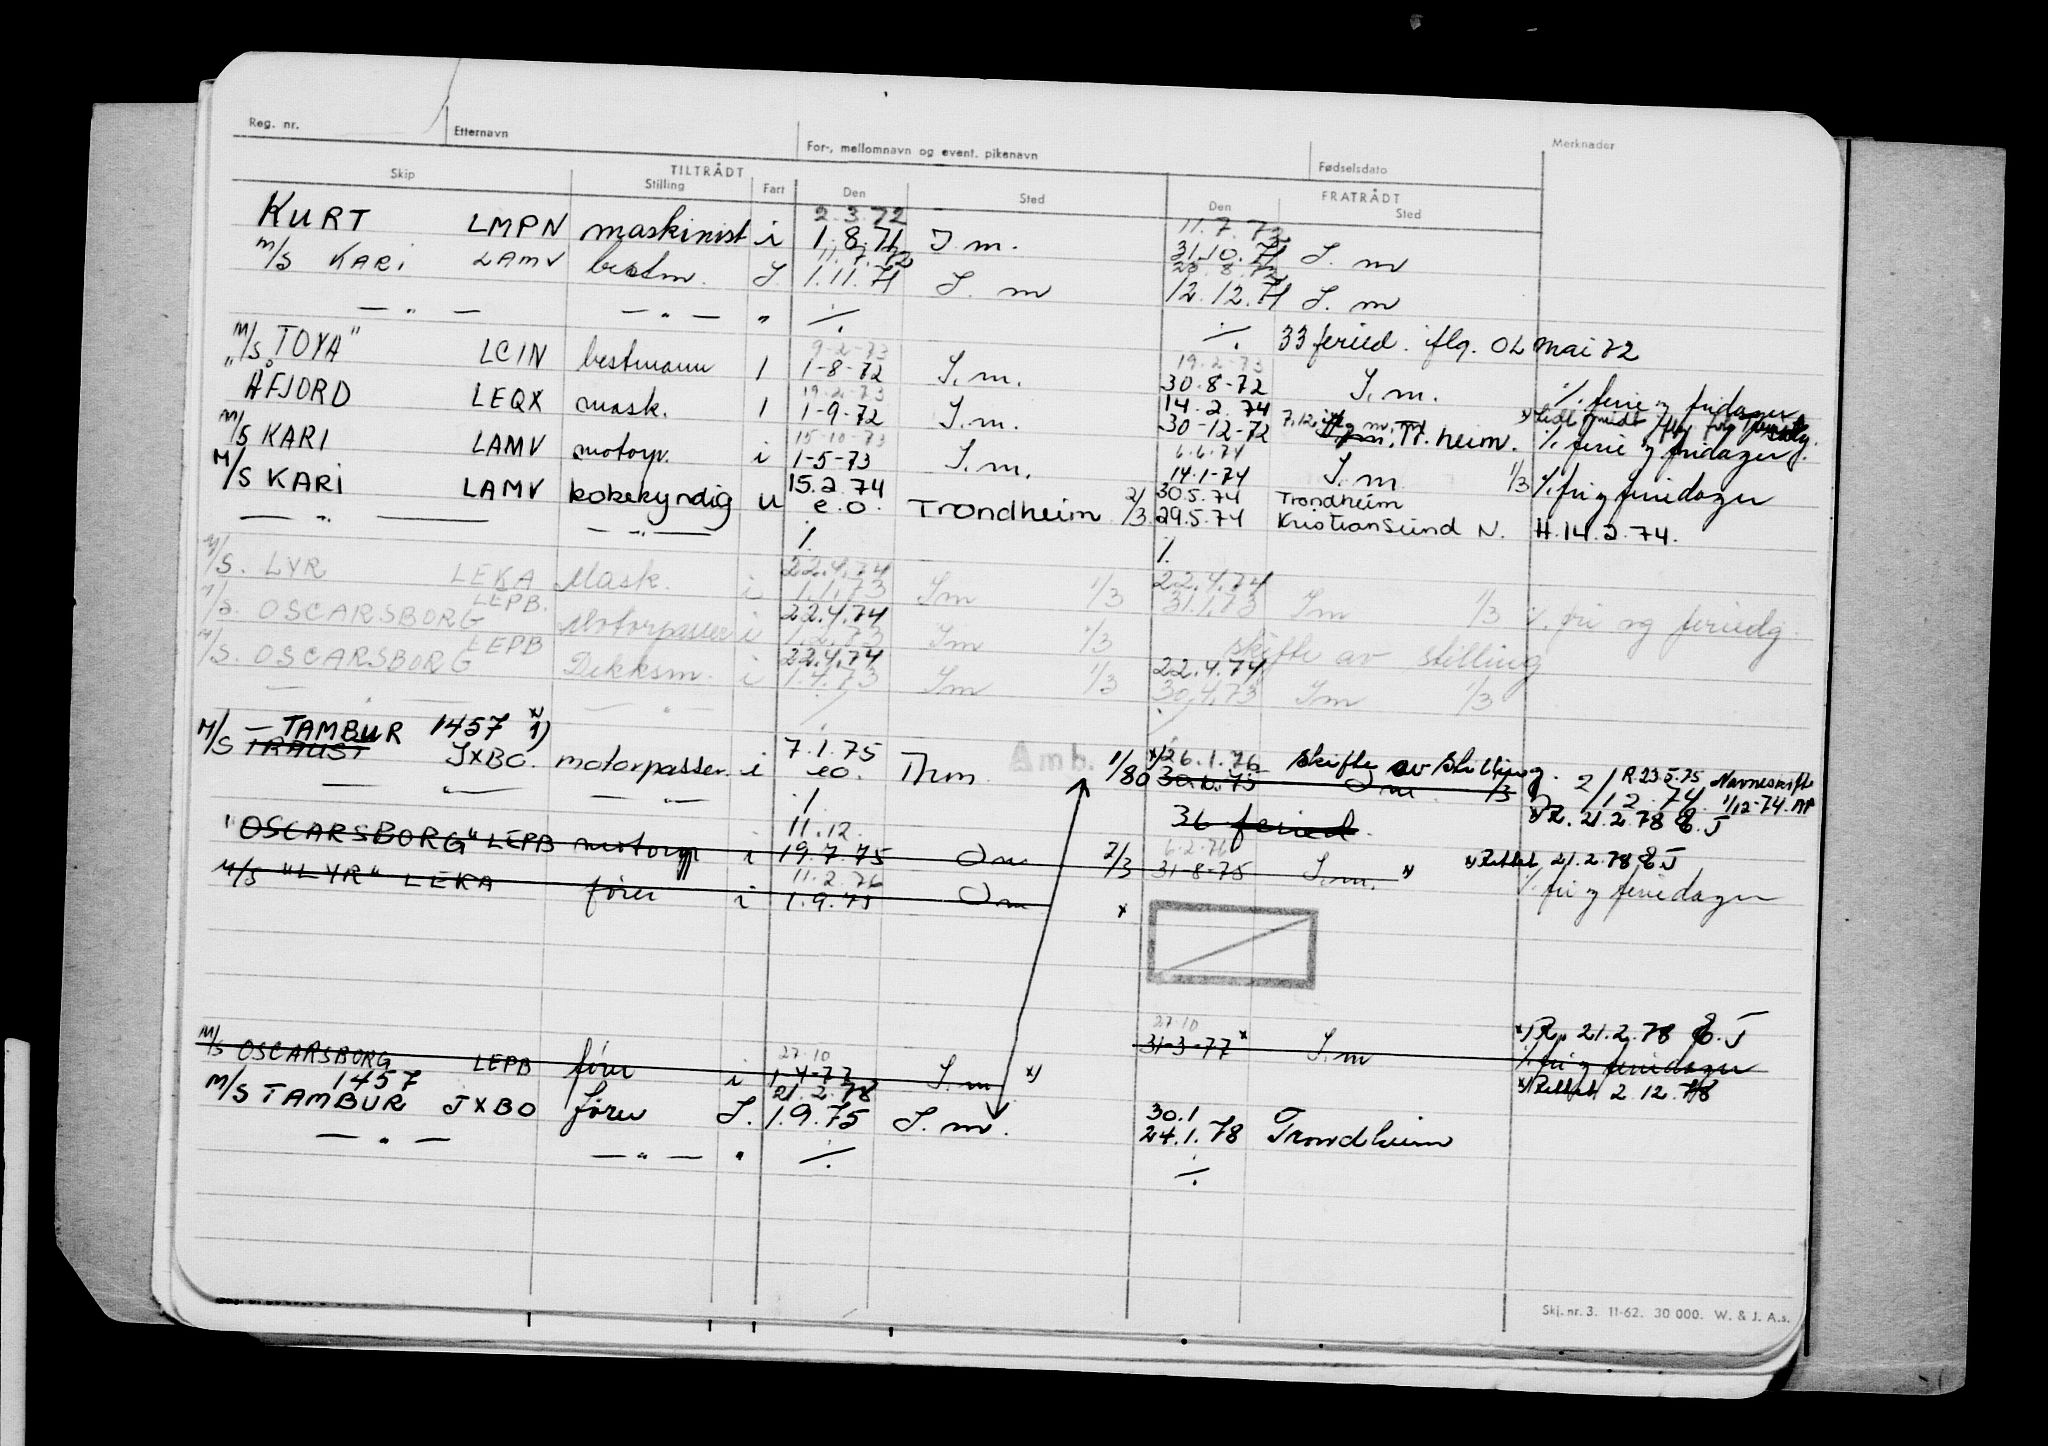 Reg. nr. Etternavn For-, mellomnavn og event. pikenavn Fødselsdato Merknader
TILTRÅDT FRATRÅDT
Skip Stilling Fart Den Sted Den Sted
2.3.72 11.7.72
KURT LMPN maskinist i 1.8.71 I m. 31.10.71 S. m
11.7.72 23.8.72
M/S KARI LAMV bestm. I. 1.11.71 S. m 12.12.71 S. m
— " — — " — " ./. ./. 33 feried. iflg. OL mai 72
9-2-73 19.2-73
M/S "TOYA" LCIN bestmann I 1-8-72 S.m. 30.8-72 S.m. ./. ferie og fridager
19.2-73 14.2.74
" ÅFJORD LEQX mask. I 1-9-72 S.m. 30-12-72 Tr.heim. ./. ferie og fridager.
15-10-73 6.6.74
M/S KARI LAMV motorp. i 1-5-73 S.m. 14.1-74 S.m. 1/3 ./. fri og feriedager
15.2.74 30.5.74 Trondheim
M/S KARI LAMV kokekyndig u e.o. Trondheim 2/3 29.5.74 Kristiansund N. H.14.2.74.
— " — — " — ./. ./.
22.4.74 22.4.74
M/S. LYR LEKA Mask. i 1.1.73 Sm 1/3 31.1.73 Sm 1/3 ./. fri og feriedg.
LEPB. 22.4.74
M/S. OSCARSBORG Motorpasser i 1.2.73 Sm 1/3 skifte av stilling
LEPB 22.4.74 22.4.74
M/S. OSCARSBORG Dekksm. i 1.4.73 Sm 1/3 30.4.73 Sm 1/3
— " — — " — ./. ./.
— TAMBUR 1457 x1) 7.1.75 Amb. x)26.1.76 Skifte av stilling. R.23.5.75 Navneskifte
M/S TRAUST JXBO. motorpasser. i eo. Thm. 1/80 30.6.75 Sm 1/3 2/12.74. 1/12-74. AP
— " — — " — ./. 36 feried. x) R. 21.2.78 E.J
11.12. 6.2.76
"OSCARSBORG" LEPB motorp i 19.7.75 Sm 2/3 31-8-75 S.m. x) x) Rettet 21.2.78 E.J
11.2.76
M/S "LYR" LEKA fører i 1.9.75 Sm x ./. fri og feriedager
27.10 27.10 x) R. 21.2.78 E.J
M/S OSCARSBORG LEPB fører i 1-4-77 S.m x) 31-3-77 x S.m ./. fri og feriedager
1457 21.2.78 30.1 x) Rettet 2.12.78
M/S TAMBUR JXBO fører I. 1.9.75 S. m. 24.1.78 Trondheim
— " — — " — " ./. ./.
Skj. nr. 3. 11-62. 30 000. W. & J. A.s.